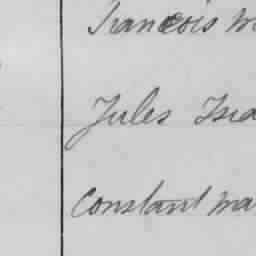 François
Jules Isa
Constant Ma